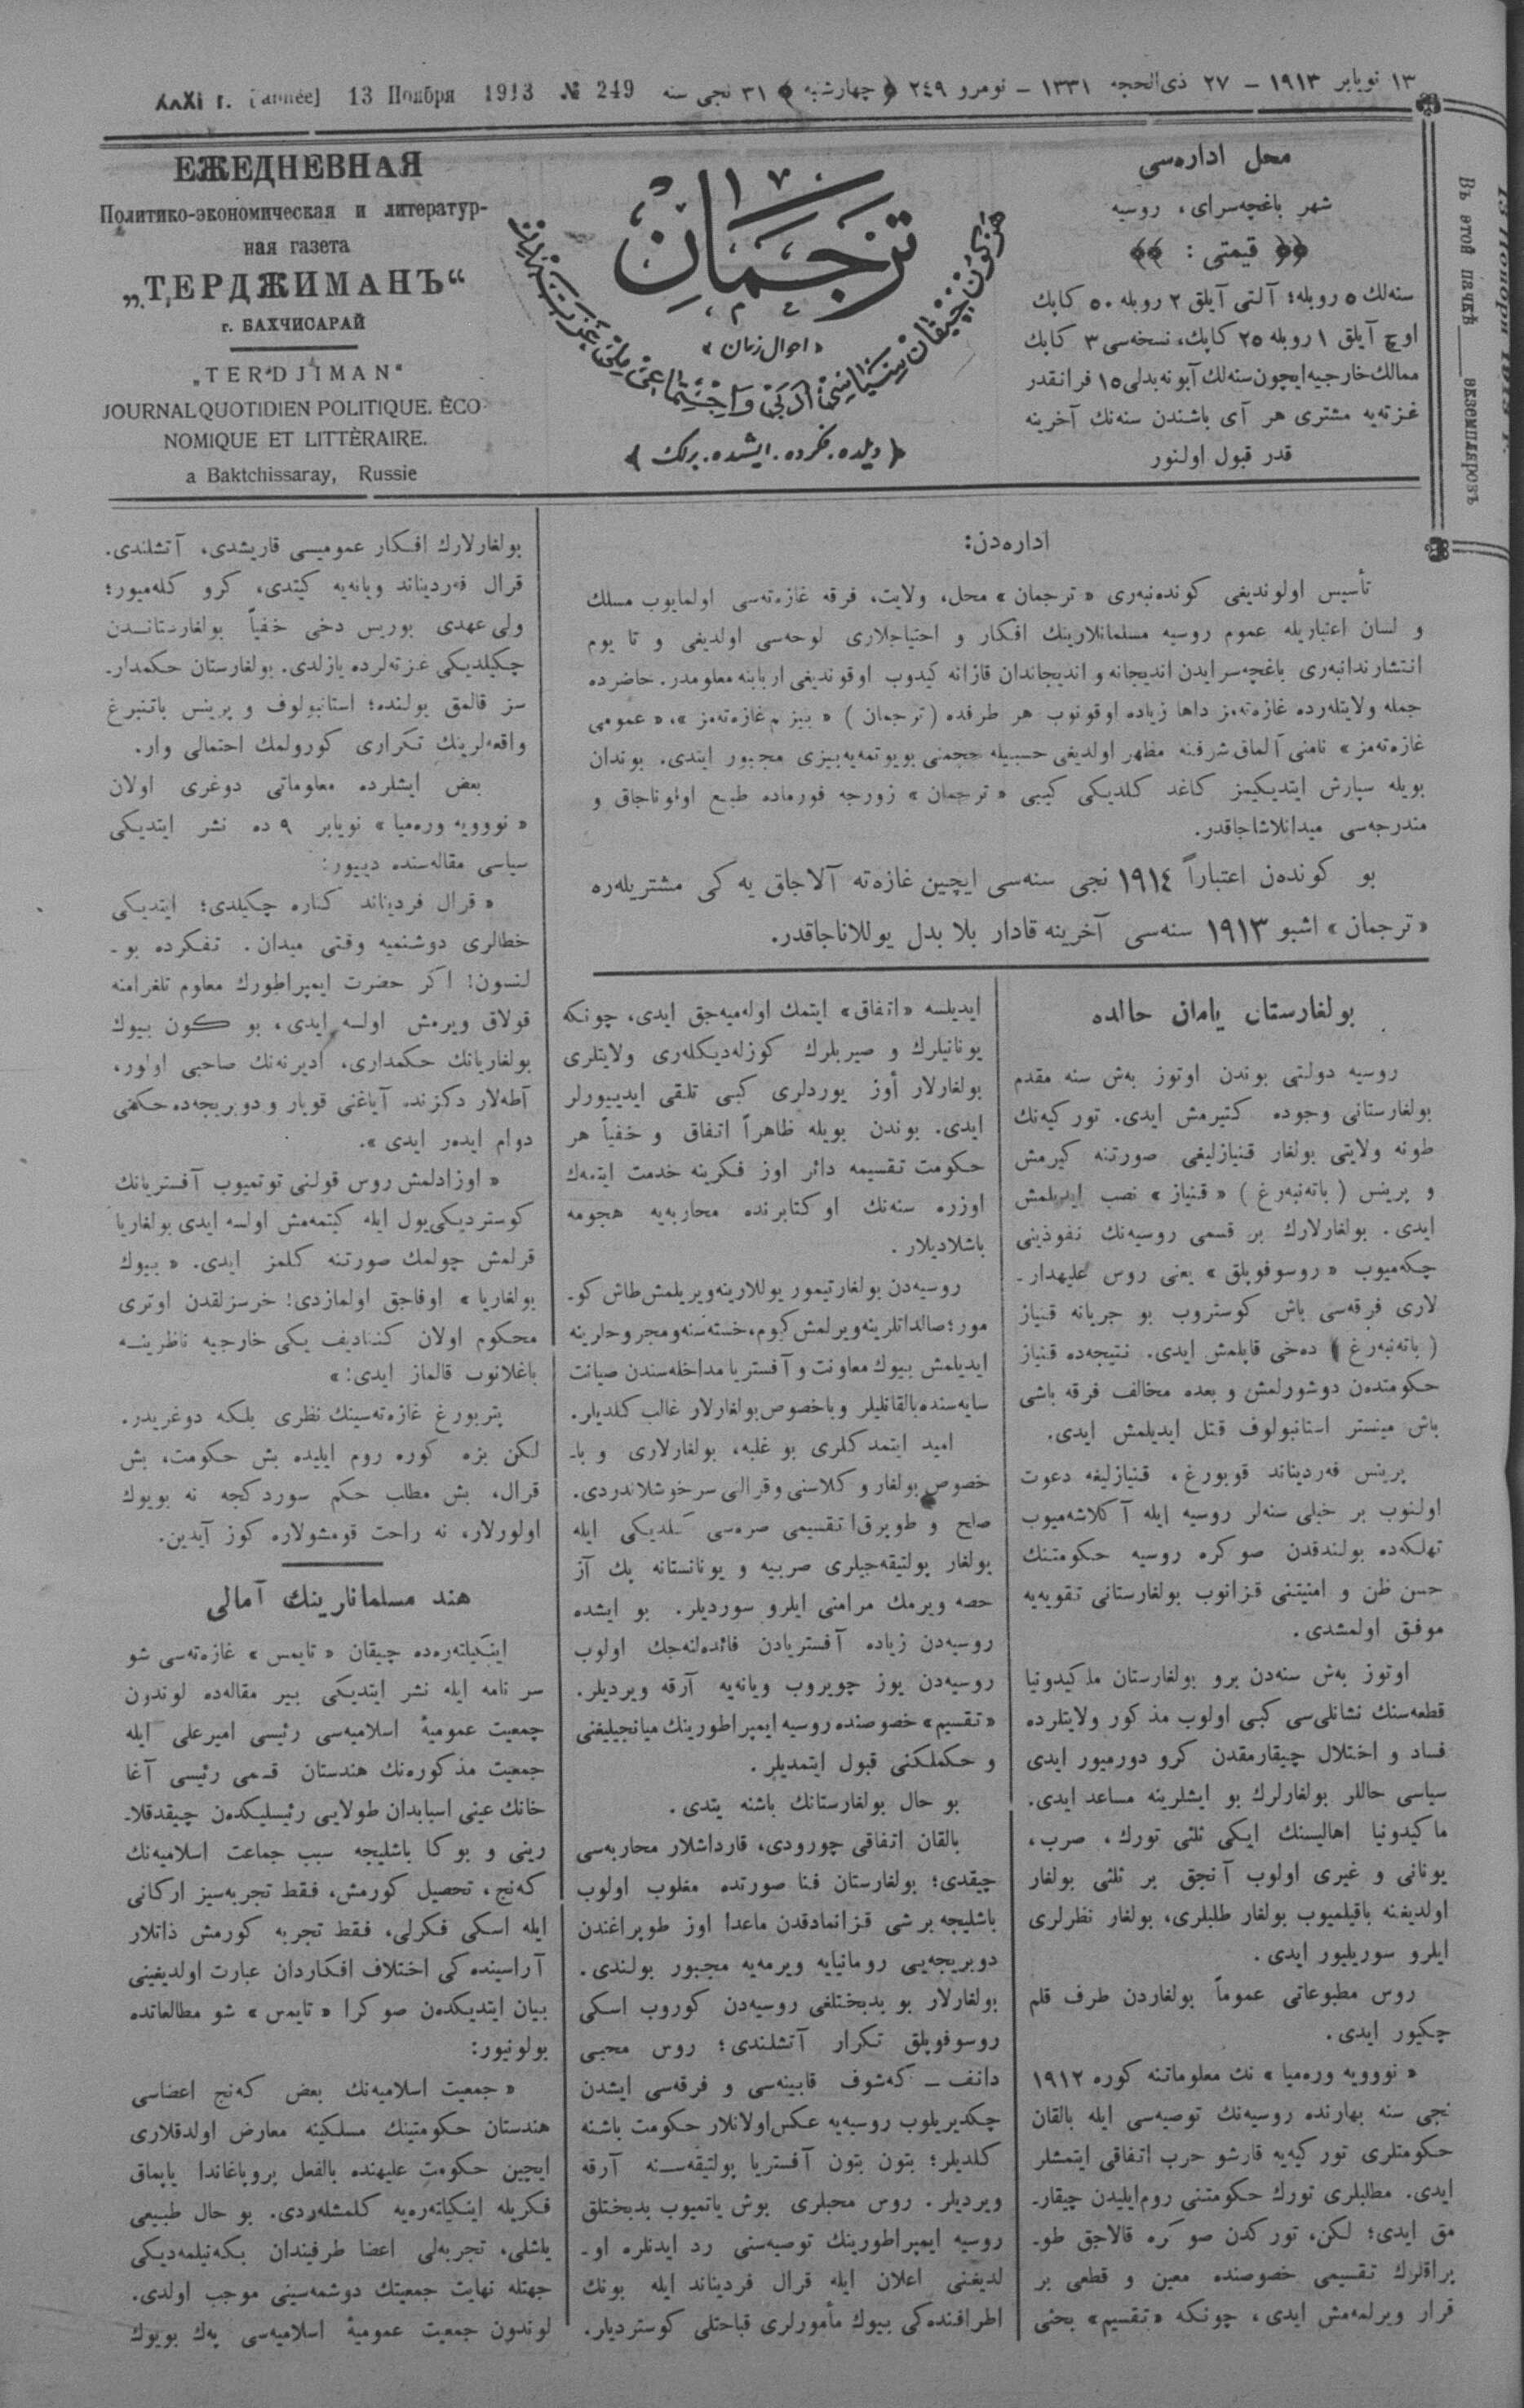 XXXI г. [année] 13 Ноября 1913 № 249
١٣ نویابر ١٩١٣ – ٢٧ ذی‌الحجه ١٣٣١ – نومرو ٢٤٩ ﴿ چهارشنبه ﴾ ٣١ نجی سنه
ЕЖЕДНЕВНАЯ
Политико-экономическая и литератур-
ная газета
„ТЕРДЖИМАНЪ“
г. БАХЧИСАРАЙ
„TERDJIMAN“
JOURNAL QUOTIDIEN POLITIQUE. ÈCO-
NOMIQUE ET LITTÈRAIRE.
a Baktchissaray, Russie
ترجمان
« احوال زمان »
هر كون چیقان سیاسی، ادبی و اجتماعی ملی غزته‌در
﴿ دیلده. فكرده. ایشده. برلك ﴾
محل اداره‌سی
شهر باغچه‌سرای، روسیه
﴿﴿ قیمتی : ﴾﴾
سنه‌لك ٥ روبله؛ آلتی آیلق ٢ روبله ٥٠ كاپك
اوچ آیلق ١ روبله ٢٥ كاپك، نسخه‌سی ٣ كاپك
ممالك خارجیه ایچون سنه‌لك آبونه بدلی ١٥ فرانقدر
غزته‌یه مشتری هر آی باشندن سنه‌نك آخرینه
قدر قبول اولنور
13 Ноября 1913 г.
Въ этой пачкѣ ___ экземпляровъ
اداره‌دن:
تأسیس اولوندیغی كونده‌نبه‌ری « ترجمان » محل، ولایت، فرقه غازه‌ته‌سی اولمایوب مسلك
و لسان اعتباریله عموم روسیه مسلمانلارینك افكار و احتیاجلاری لوحه‌سی اولدیغی و تا یوم
انتشارندانبه‌ری باغچه‌سرایدن اندیجانه و اندیجاندان قازانه كیدوب اوقوندیغی اربابنه معلومدر. حاضرده
جمله ولایتله‌رده غازه‌ته‌مز داها زیاده اوقونوب هر طرفده ( ترجمان ) « بیزم غازه‌ته‌مز »، « عمومی
غازه‌ته‌مز » نامنی آلماق شرفنه مظهر اولدیغی حسبیله حجمنی بویوتمه‌یه بیزی مجبور ایتدی. بوندان
بویله سپارش ایتدیكیمز كاغد كلدیكی كیبی « ترجمان » زورجه فورماده طبع اولوناجاق و
مندرجه‌سی میدانلاشاجاقدر.
بو كوندەن اعتباراً ١٩١٤ نجی سنه‌سی ایچین غازه‌ته آلاجاق یه كی مشتریله‌ره
« ترجمان » اشبو ١٩١٣ سنه‌سی آخرینه قادار بلا بدل یوللاناجاقدر.
بولغارستان یامان حالده
روسیه دولتی بوندن اوتوز به‌ش سنه مقدم
بولغارستانی وجوده كتیرمش ایدی. توركیه‌نك
طونه ولایتی بولغار قنیازلیغی صورتنه كیرمش
و پرینس ( باته‌نبه‌رغ ) « قنیاز » نصب ایدیلمش
ایدی. بولغارلارك بر قسمی روسیه‌نك نفوذینی
چكه‌میوب « روسوفوبلق » یعنی روس علیهدار-
لاری فرقه‌سی باش كوستروب بو جریانه قنیاز
( باته‌نبه‌رغ ) ده‌خی قاپلمش ایدی. نتیجه‌ده قنیاز
حكومتدەن دوشورلمش و بعده مخالف فرقه باشی
باش مینستر استانبولوف قتل ایدیلمش ایدی.
پرینس فه‌ردیناند قوبورغ، قنیازلیغه دعوت
اولنوب بر خیلی سنه‌لر روسیه ایله آكلاشه‌میوب
تهلكه‌ده بولندقدن صوكره روسیه حكومتنك
حسن ظن و امنیتنی قزانوب بولغارستانی تقویه‌یه
موفق اولمشدی.
اوتوز به‌ش سنه‌دن برو بولغارستان ماكیدونیا
قطعه‌سنك نشانلی‌سی كبی اولوب مذكور ولایتلرده
فساد و اختلال چیقارمقدن كرو دورمیور ایدی
سیاسی حاللر بولغارلرك بو ایشلرینه مساعد ایدی.
ماكیدونیا اهالیسنك ایكی ثلثی تورك، صرب،
یونانی و غیری اولوب آنجق بر ثلثی بولغار
اولدیغنه باقیلمیوب بولغار طلبلری، بولغار نظرلری
ایلرو سوریلیور ایدی.
روس مطبوعاتی عموماً بولغاردن طرف قلم
چكیور ایدی.
« نووویه وره‌میا » نك معلوماتنه كوره ١٩١٢
نجی سنه بهارنده روسیه‌نك توصیه‌سی ایله بالقان
حكومتلری توركیه‌یه قارشو حرب اتفاقی ایتمشلر
ایدی. مطلبلری تورك حكومتنی روم‌ایلیدن چیقار-
مق ایدی؛ لكن، توركدن صوكره قالاجق طو-
پراقلرك تقسیمی خصوصنده معین و قطعی بر
قرار ویرلمه‌مش ایدی، چونكه « تقسیم » بحثی
ایدیلسه « اتفاق » ایتمك اوله‌میه‌جق ایدی، چونكه
یونانیلرك و صیربلرك كوزله‌دیكله‌ری ولایتلری
بولغارلار أوز یوردلری كبی تلقی ایدییورلر
ایدی. بوندن بویله ظاهراً اتفاق و خفیاً هر
حكومت تقسیمه دائر اوز فكرینه خدمت ایتمه‌ك
اوزره سنه‌نك اوكتابرنده محاربه‌یه هجومه
باشلادیلار.
روسیه‌دن بولغار تیمور یوللارینه ویریلمش طاش كو-
مور؛ صالداتلرینه ویرلمش كیوم، خسته‌سنه و مجروحلرینه
ایدیلمش بیوك معاونت و آفستریا مداخله‌سندن صیانت
سایه‌سنده بالقانلیلر و باخصوص بولغارلار غالب كلدیلر.
امید ایتمدكلری بو غلبه، بولغارلاری و با-
خصوص بولغار وكلاسنی و قرالی سرخوشلاندردی.
صلح و طوپراق تقسیمی صره‌سی كلدیكی ایله
بولغار پولتیقه‌جیلری صربیه و یونانستانه پك آز
حصه ویرمك مرامنی ایلرو سوردیلر. بو ایشده
روسیه‌دن زیاده آفستریادن فائده‌لنه‌جك اولوب
روسیه‌دن یوز چویروب ویانه‌یه آرقه ویردیلر.
« تقسیم » خصوصنده روسیه ایمپراطورینك میانجیلیغنی
و حكملكنی قبول ایتمدیلر.
بو حال بولغارستانك باشنه یتدی.
بالقان اتفاقی چورودی، قارداشلار محاربه‌سی
چیقدی؛ بولغارستان فنا صورتده مغلوب اولوب
باشلیجه بر شی قزانمادقدن ماعدا اوز طوپراغندن
دوبریجه‌یی رومانیایه ویرمه‌یه مجبور بولندی.
بولغارلار بو بدبختلغی روسیه‌دن كوروب اسكی
روسوفوبلق تكرار آتشلندی؛ روس محبی
دانف – كه‌شوف قابینه‌سی و فرقه‌سی ایشدن
چكدیریلوب روسیه‌یه عكس اولانلار حكومت باشنه
كلدیلر؛ بتون بتون آفستریا پولتیقه‌سنه آرقه
ویردیلر. روس محبلری بوش یاتمیوب بدبختلق
روسیه ایمپراطورینك توصیه‌سنی رد ایدنلره او-
لدیغنی اعلان ایله قرال فردیناند ایله بونك
اطرافنده‌كی بیوك مأمورلری قباحتلی كوستردیلر.
بولغارلارك افكار عمومیسی قاریشدی، آتشلندی.
قرال فه‌ردیناند ویانه‌یه كیتدی، كرو كله‌میور؛
ولی عهدی بوریس دخی خفیاً بولغارستاندن
چكیلدیكی غزته‌لرده یازلدی. بولغارستان حكمدار-
سز قالمق یولنده؛ استانبولوف و پرینس باتنبرغ
واقعه‌لرینك تكراری كورولمك احتمالی وار.
بعض ایشلرده معلوماتی دوغری اولان
« نووویه وره‌میا » نویابر ٩ ده نشر ایتدیكی
سیاسی مقاله‌سنده دییور:
« قرال فردیناند كناره چكیلدی؛ ایتدیكی
خطالری دوشنمیه وقتی میدان. تفكرده بو-
لنسون! اكر حضرت ایمپراطورك معلوم تلغرامنه
قولاق ویرمش اولسه ایدی، بو كون بیوك
بولغاریانك حكمداری، ادیرنه‌نك صاحبی اولور،
آطه‌لار دكزنده آیاغنی قویار و دوبریجه‌ده حكمی
دوام ایدەر ایدی ».
« اوزادلمش روس قولنی توتمیوب آفستریانك
كوستردیكی یول ایله كیتمه‌مش اولسه ایدی بولغاریا
قرلمش چولمك صورتنه كلمز ایدی. « بیوك
بولغاریا » اوفاجق اولمازدی! خرسزلقدن اوتری
محكوم اولان كنادیف یكی خارجیه ناظرینه
باغلانوب قالماز ایدی: »
پتربورغ غازه‌ته‌سینك نظری بلكه دوغریدر.
لكن بزه كوره روم ایلیده بش حكومت، بش
قرال، بش مطلب حكم سوردكجه نه بویوك
اولورلار، نه راحت قومشولاره كوز آیدین.
هند مسلمانلرینك آمالی
اینكیلته‌ره‌ده چیقان « تایمس » غازه‌ته‌سی شو
سر نامه ایله نشر ایتدیكی بیر مقاله‌ده لوندون
جمعیت عمومیهٔ اسلامیه‌سی رئیسی امیرعلی ایله
جمعیت مذكوره‌نك هندستان قسمی رئیسی آغا
خانك عینی اسبابدان طولایی رئیسلیكدەن چیقدقلا-
رینی و بوكا باشلیجه سبب جماعت اسلامیه‌نك
كه‌نج، تحصیل كورمش، فقط تجربه‌سیز اركانی
ایله اسكی فكرلی، فقط تجربه كورمش ذاتلار
آراسینده كی اختلاف افكاردان عبارت اولدیغینی
بیان ایتدیكدەن صوكرا « تایمس » شو مطالعاتده
بولونیور:
« جمعیت اسلامیه‌نك بعض كه‌نج اعضاسی
هندستان حكومتینك مسلكینه معارض اولدقلاری
ایچین حكومت علیهنده بالفعل پروپاغاندا یاپماق
فكریله اینكیلته‌ره‌یه كلمشله‌ردی. بو حال طبیعی
یاشلی، تجربه‌لی اعضا طرفیندان بكه‌نیلمه‌دیكی
جهتله نهایت جمعیتك دوشمه‌سینی موجب اولدی.
لوندون جمعیت عمومیهٔ اسلامیه‌سی یه‌ك بویوك